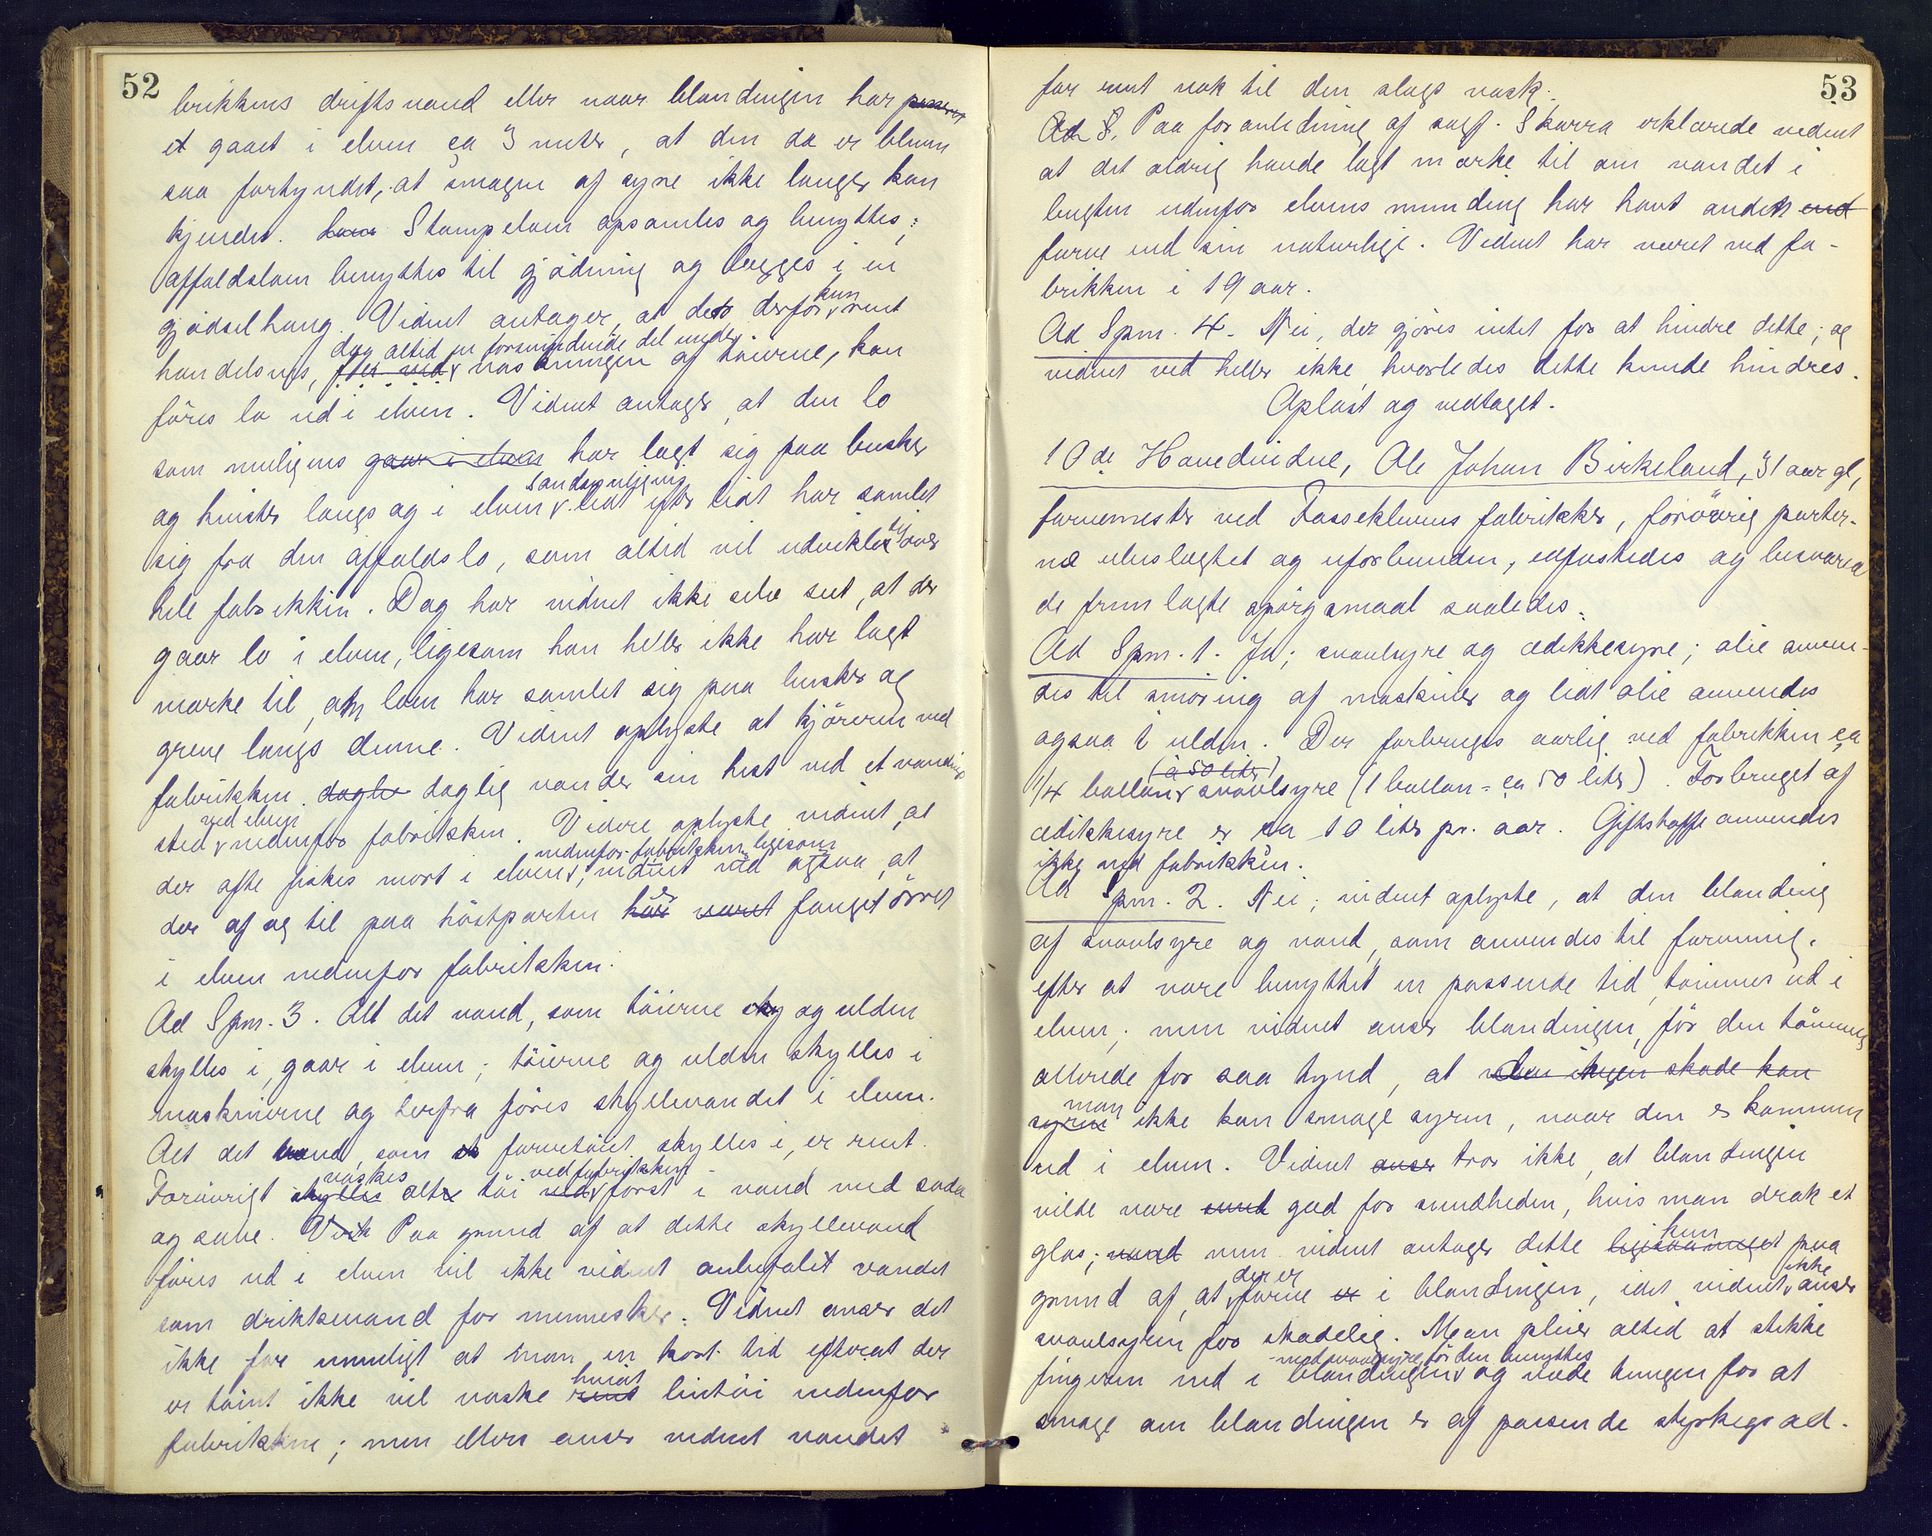 52
brikkens driftsvand eller naar blandingen har passeret
et gaaet i elven ca 3 meter, at den da er bleven
saa fortyndet, at smagen af syre ikke længer kan
kjendes. Stampeloen opsamles og benyttes;
affaldsloen benyttes til gjødning og lægges i en
gjødselhaug. Vidnet antager, at det derfor kun rent
hændelsvis, dog altid en forsvindende del under vaskningen af tøierne, kan
føres lo ud i elven. Vidnet antager, at den lo
som muligens gaar i elven har lagt sig paa busker
og kvister langs og i elven sandsynligvis lidt efter lidt har samlet
sig fra den affaldslo, som altid vil udvikle sig over
hele fabrikken. Dog har vidnet ikke selv seet, at der
gaar lo i elven, ligesom han heller ikke har lagt
mærke til, at loen har samlet sig paa busker og
grene langs denne. Vidnet oplyste at kjøreren ved
fabrikken daglig vander sin hest ved et vandings
sted ved elven nedenfor fabrikken. Videre oplyste vidnet, at
der ofte fiskes mort i elven nedenfor fabrikken, ligesom vidnet ved ogsaa, at
der af og til paa høstparten har er været fanget ørret
i elven nedenfor fabrikken.
Ad Spm. 3. Alt det vand, som tøierne sky og ulden
skylles i, gaar i elven; tøierne og ulden skylles i
maskinerne og derfra føres skyllevandet i elven.
Alt det vand, som farvetøiet skylles i, er rent.
Forøvrigt skylles vaskes alt tøi ved fabrikken først i vand med soda
og sæbe. Paa grund af at dette skyllevand
føres ud i elven vil ikke vidnet anbefalet vandet
som drikkevand for mennesker. Vidnet anser det
ikke for umuligt at man en kort tid efterat der
er tømt ikke vil vaske rent hvidt lintøi nedenfor
fabrikken; men ellers anser vidnet vandet
53
for rent nok til den slags vask.
Ad 8. Paa foranledning af sagf. Skarra erklærede vidnet
at det aldrig havde lagt mærke til om vandet i
bugten udenfor elvens munding har havt anden end
farve end sin naturlige. Vidnet har været ved fa-
brikken i 19 aar.
Ad Spm. 4. Nei, der gjøres intet for at hindre dette, og
vidnet ved heller ikke, hvorledes dette kunde hindres.
Oplæst og vedtaget.
10de Hovedvidne, Ole Johan Birkeland, 31 aar gl,
farvemester ved Fosseklevens fabrikker, forøvrig parter-
ne ubeslægtet og uforbunden, edfæstedes og besvarede
de fremlagte spørgsmaal saaledes:
Ad Spm. 1. Ja; svovlsyre og edikkesyre; olie anven-
des til smøring af maskiner og lidt olie anvendes
ogsaa i ulden. Der forbruges aarlig ved fabrikken ca
1/4 ballon (à 50 liter) svovlsyre (1 ballon = ca 50 liter). Forbruget af
edikkesyre er ca 10 liter pr. aar. Giftstoffe anvendes
ikke ved fabrikken.
Ad Spm. 2. Nei; vidnet oplyste, at den blanding
af svovlsyre og vand, som anvendes til farvning,
efter at være benyttet en passende tid, tømmes ud i
elven; men vidnet anser blandingen, før den tømmes
allerede for saa tynd, at den ingen skade kan
syren man ikke kan smage syren, naar den er kommen
ud i elven. Vidnet anser tror ikke, at blandingen
vilde være sund god for sundheden, hvis man drak et
glas; vand men vidnet antager dette ligesaameget kun paa
grund af, at der er farve er i blandingen, idet vidnet ikke anser
svovlsyren for skadelig. Man pleier altid at stikke
fingeren ned i blandingen med svovlsyre før den benyttes og væde tungen for at
smage om blandingen er af passende styrkegrad.